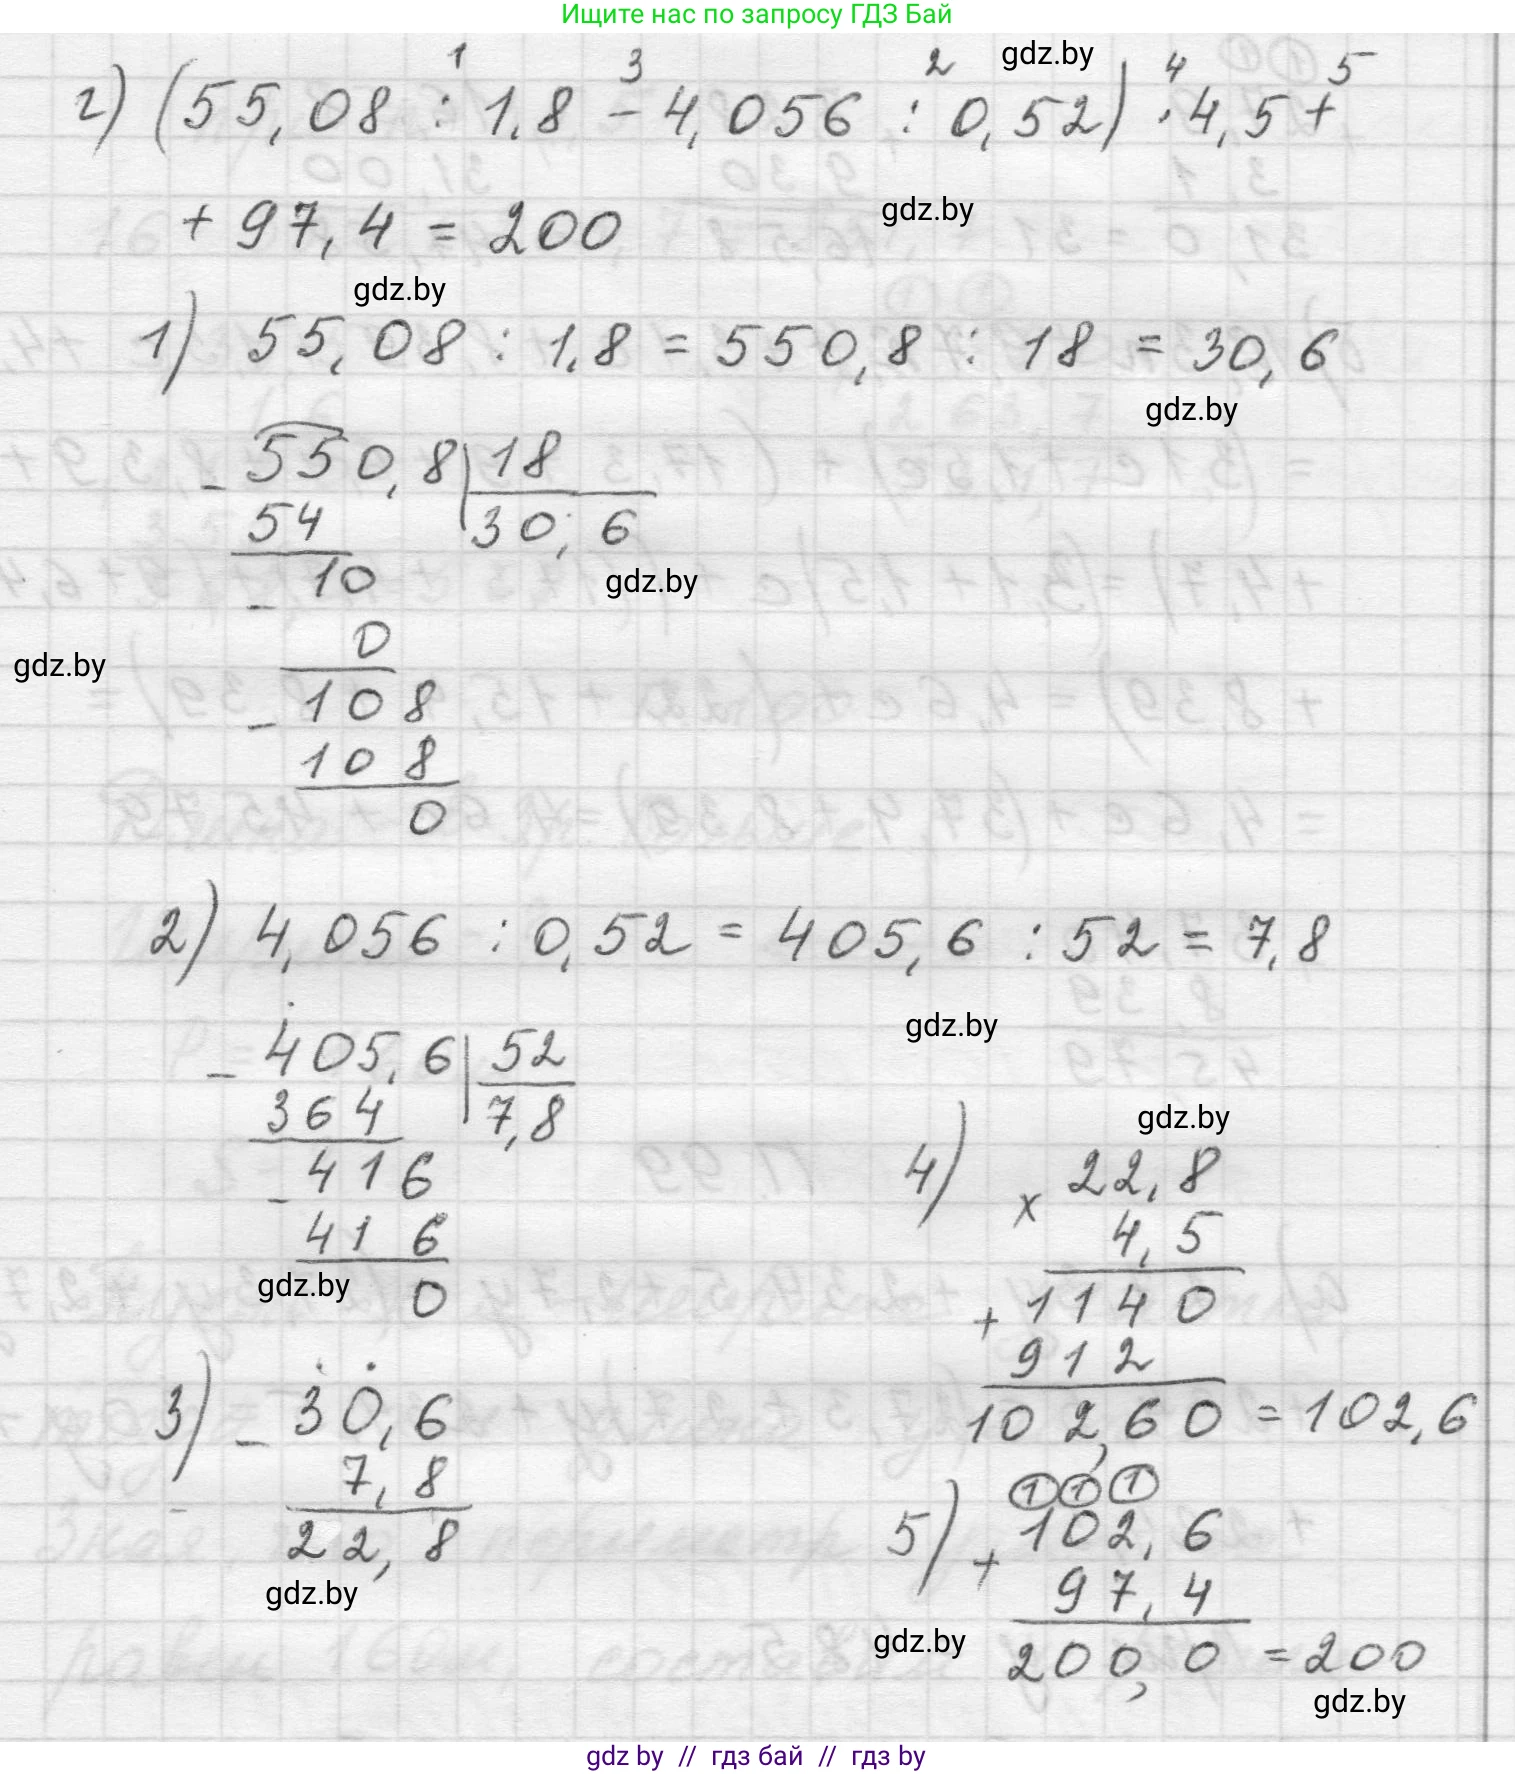 Ищите нас по запросу ГДЗ Бай
1 3 2 gdz.by 4 5
г) (55,08 : 1,8 - 4,056 : 0,52) · 4,5 +
+ 97,4 = 200 gdz.by
gdz.by
1) 55,08 : 1,8 = 550,8 : 18 = 30,6
gdz.by
- 550,8 | 18
54 30,6
- 10 gdz.by
0
gdz.by
- 108
108
0
2) 4,056 : 0,52 = 405,6 : 52 = 7,8
gdz.by
- 405,6 | 52
364 7,8
- 416
416
gdz.by 0
3) - 30,6
7,8
22,8
gdz.by
gdz.by
4) × 22,8
4,5
+ 1140
912
102,60 = 102,6
1 1 1
5) + 102,6
97,4
gdz.by 200,0 = 200
gdz.by
gdz by // гдз бай // гдз by